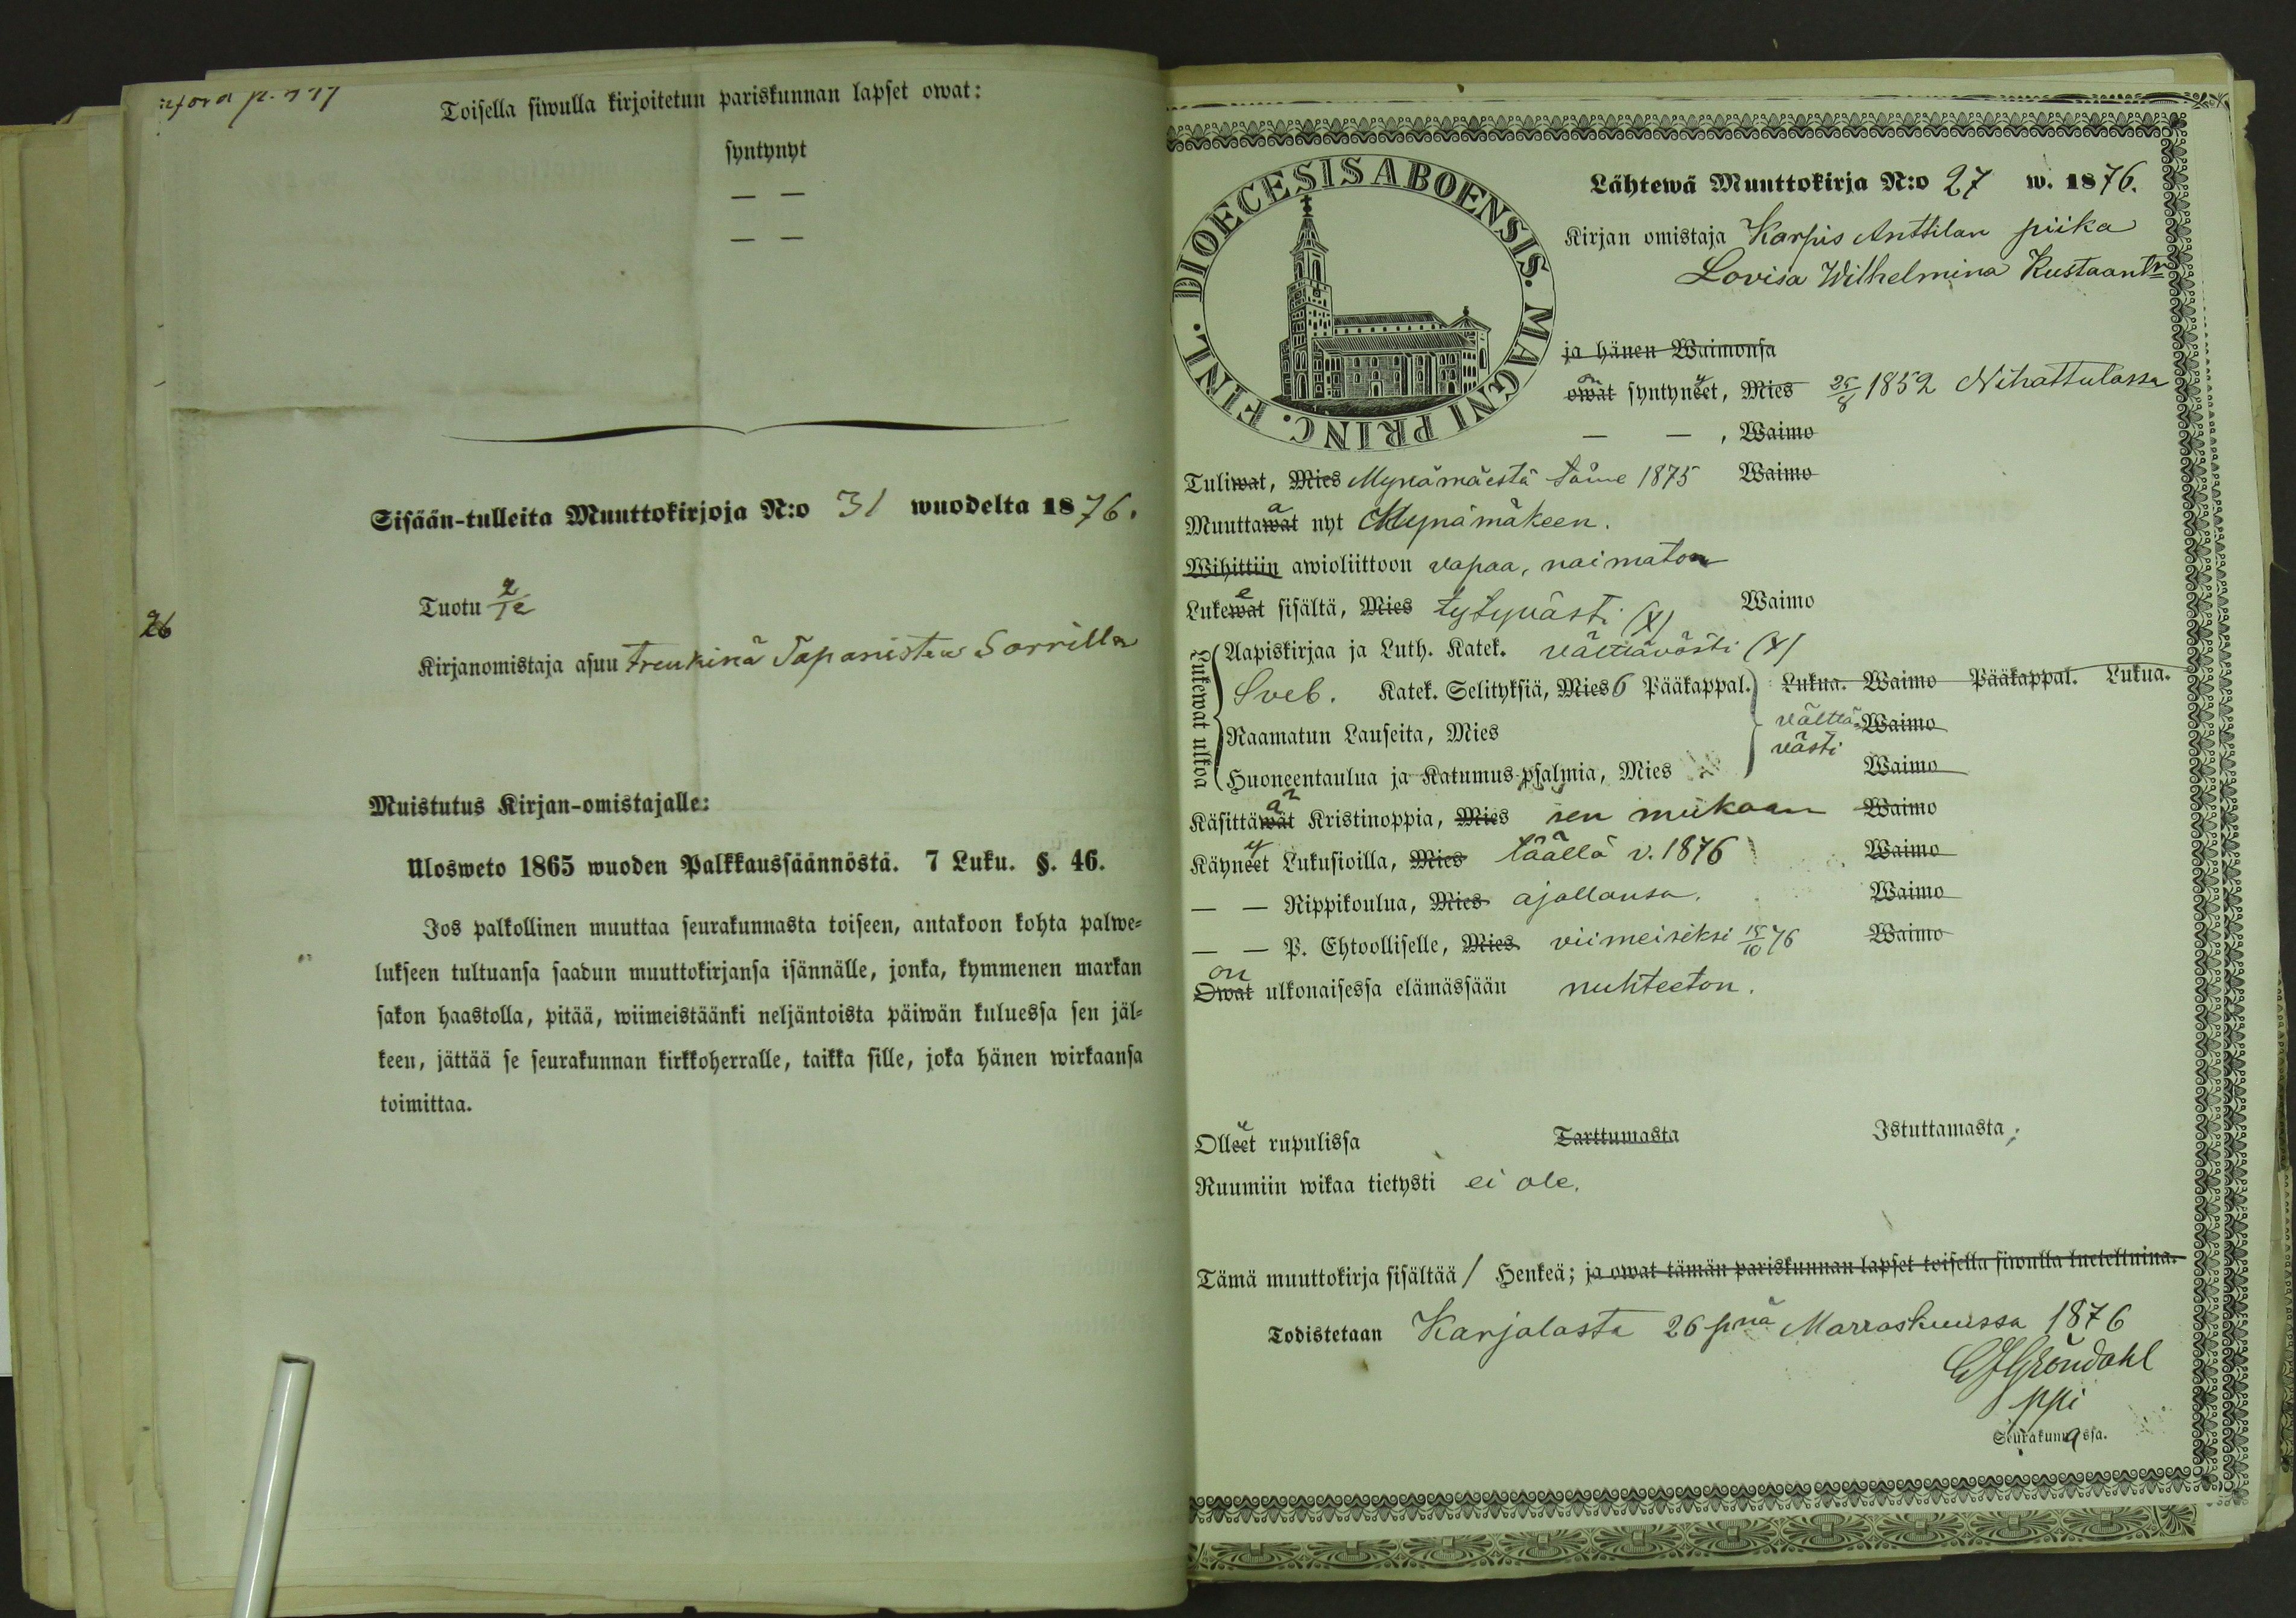 Toisella siwulla kirjoitetun pariskunnan lapset owat:
syntynyt
— —
— —
Sisään-tulleita Muuttokirjoja N:o 31 wuodelta 1876.
Tuotu 2/12
26
Kirjanomistaja asuu Trenkinä Tapanisten Sorrilla
Muistutus Kirjan-omistajalle:
Ulosweto 1865 wuoden Palkkaussäännöstä. 7 Luku. §. 46.
Jos palkollinen muuttaa seurakunnasta toiseen, antakoon kohta palwe-
lukseen tultuansa saadun muuttokirjansa isännälle, jonka, kymmenen markan
sakon haastolla, pitää, wiimeistäänki neljäntoista päiwän kuluessa sen jäl-
keen, jättää se seurakunnan kirkkoherralle, taikka sille, joka hänen wirkaansa
toimittaa.
DIOECESIS ABOENSIS. MAGNI PRINC. FINL.
Lähtewä Muuttokirja N:o 27 w. 1876.
Kirjan omistaja Karpis Anttilan piika
Lovisa Wilhelmina Kustaantr
ja hänen Waimonsa
owat syntyneet, Mies 25/8 1852 Nihattulassa
— — , Waimo
Tuliwat, Mies Mynämäestä tänne 1875 Waimo
Muuttawat nyt Mynämäkeen.
Wihittiin awioliittoon vapaa, naimaton
Lukewat sisältä, Mies tytyvästi (x) Waimo
Lukewat ulkoa
Aapiskirjaa ja Luth. Katek. välttävästi (x)
Sveb. Katek. Selityksiä, Mies 6 Pääkappal. Lukua. Waimo Pääkappal. Lukua.
Raamatun Lauseita, Mies välttä- Waimo
västi
Huoneentaulua ja Katumus-psalmia, Mies Waimo
Käsittäwät Kristinoppia, Mies sen mukaan Waimo
Käyneet Lukusioilla, Mies täällä v. 1876 Waimo
— — Rippikoulua, Mies ajallansa. Waimo
— — P. Ehtoolliselle, Mies viimeiseksi 15/10 76 Waimo
on
Owat ulkonaisessa elämässään nuhteeton.
Olleet rupulissa Tarttumasta Istuttamasta.
Ruumiin wikaa tietysti ei ole.
Tämä muuttokirja sisältää 1 Henkeä; ja owat tämän pariskunnan lapset toisella siwulla lueteltuina.
Todistetaan Karjalasta 26 pnä Marraskuussa 1876
Gröndahl
ppi
Seurakunnassa.